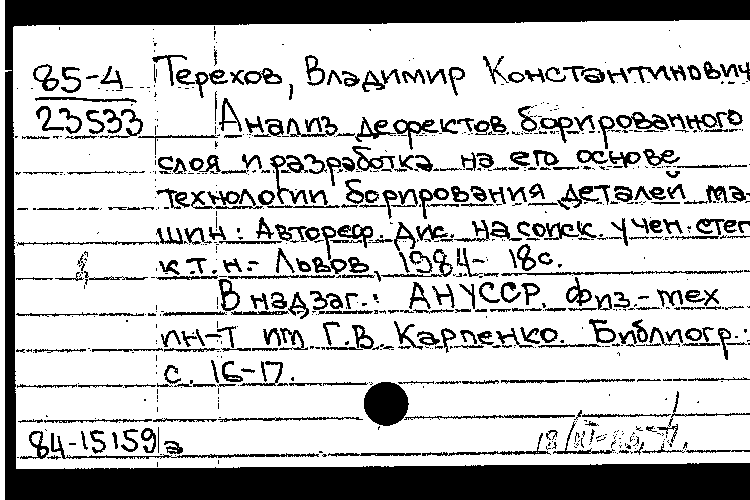 85-4
23533
Терехов, Владимир Константинович
Анализ дефектов борированного
слоя и разработка на его основе
технологии борирования деталей ма-
шин: Автореф. дис. на соиск. учен. степ
к.т.н.- Львов, 1984- 18с.
В надзаг.: АН УССР. Физ.-мех
ин-т им Г.В. Карпенко. Библиогр.:
с. 16-17.
84-15159 а